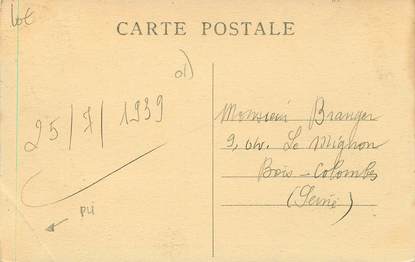 CARTE POSTALE
25/7/1939
Monsieur Branger
9, av. Le Mignon
Bois-Colombes
(Seine)
pli